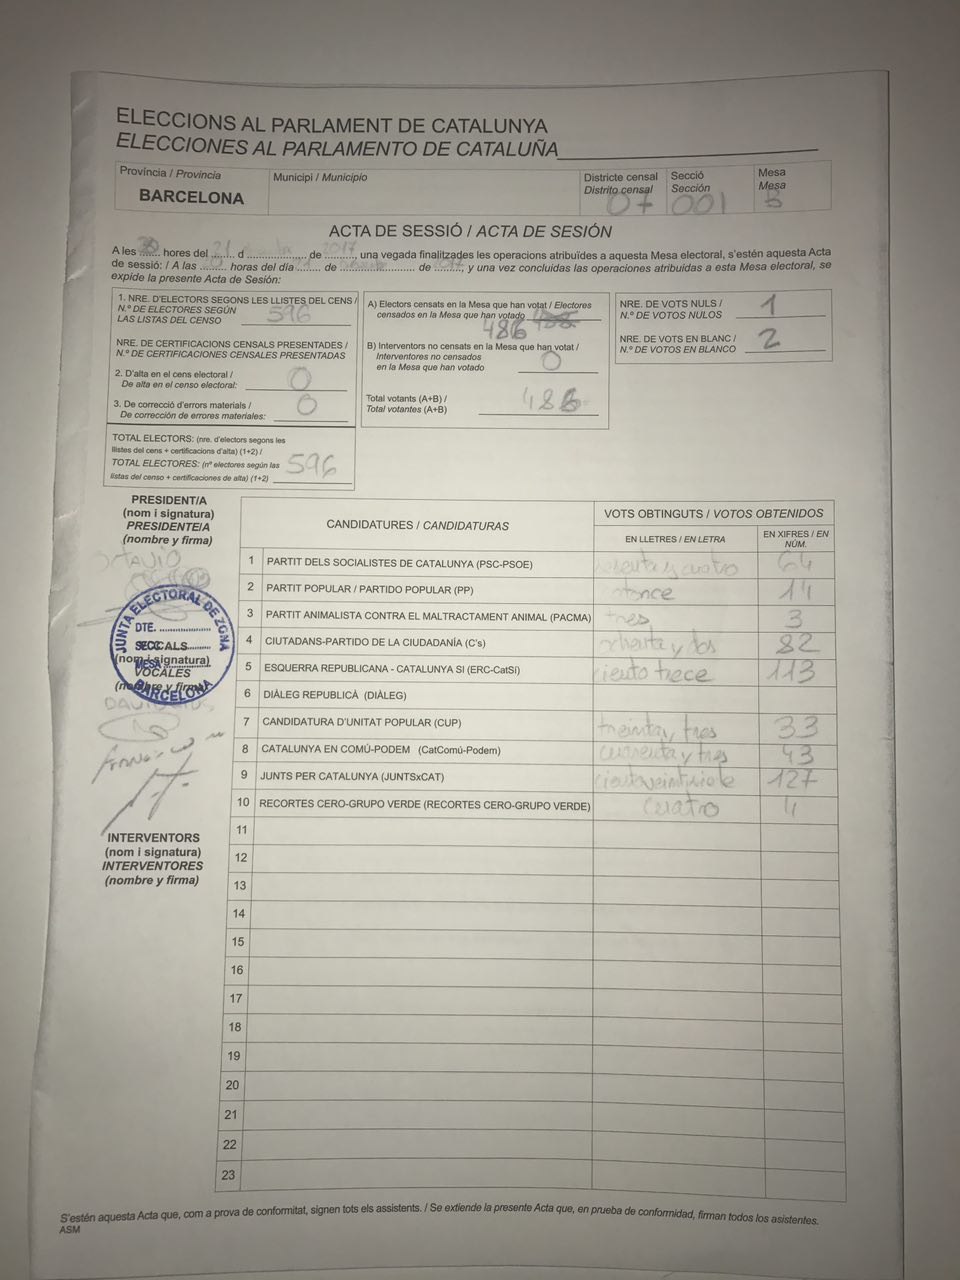 ELECCIONS AL PARLAMENT DE CATALUNYA
ELECCIONES AL PARLAMENTO DE CATALUÑA
Província / Provincia
BARCELONA
Municipi / Municipio
Districte censal
Distrito censal
07
Secció
Sección
001
Mesa
Mesa
B
ACTA DE SESSIÓ / ACTA DE SESIÓN
A les 20 hores del 21 d de 2017, una vegada finalitzades les operacions atribuïdes a aquesta Mesa electoral, s'estén aquesta Acta
de sessió: / A las horas del día de de 2017, y una vez concluidas las operaciones atribuidas a esta Mesa electoral, se
expide la presente Acta de Sesión:
1. NRE. D'ELECTORS SEGONS LES LLISTES DEL CENS /
N.º DE ELECTORES SEGÚN
LAS LISTAS DEL CENSO 596
NRE. DE CERTIFICACIONS CENSALS PRESENTADES /
N.º DE CERTIFICACIONES CENSALES PRESENTADAS
2. D'alta en el cens electoral /
De alta en el censo electoral: 0
3. De correcció d'errors materials /
De corrección de errores materiales: 0
TOTAL ELECTORS: (nre. d'electors segons les
llistes del cens + certificacions d'alta) (1+2) /
TOTAL ELECTORES: (nº electores según las
listas del censo + certificaciones de alta) (1+2) 596
A) Electors censats en la Mesa que han votat / Electores
censados en la Mesa que han votado
486
B) Interventors no censats en la Mesa que han votat /
Interventores no censados
en la Mesa que han votado 0
Total votants (A+B) /
Total votantes (A+B) 486
NRE. DE VOTS NULS /
N.º DE VOTOS NULOS 1
NRE. DE VOTS EN BLANC /
N.º DE VOTOS EN BLANCO 2
PRESIDENT/A
(nom i signatura)
PRESIDENTE/A
(nombre y firma)
JUNTA ELECTORAL DE ZONA
DTE.
SECC
MESA
BARCELONA
VOCALS
(nom i signatura)
VOCALES
(nombre y firma)
INTERVENTORS
(nom i signatura)
INTERVENTORES
(nombre y firma)
CANDIDATURES / CANDIDATURAS
VOTS OBTINGUTS / VOTOS OBTENIDOS
EN LLETRES / EN LETRA
EN XIFRES / EN
NÚM.
1 PARTIT DELS SOCIALISTES DE CATALUNYA (PSC-PSOE) sesenta y cuatro 64
2 PARTIT POPULAR / PARTIDO POPULAR (PP) 14
3 PARTIT ANIMALISTA CONTRA EL MALTRACTAMENT ANIMAL (PACMA) tres 3
4 CIUTADANS-PARTIDO DE LA CIUDADANÍA (C's) ochenta y dos 82
5 ESQUERRA REPUBLICANA - CATALUNYA SI (ERC-CatSI) ciento trece 113
6 DIÀLEG REPUBLICÀ (DIÀLEG)
7 CANDIDATURA D'UNITAT POPULAR (CUP) treinta y tres 33
8 CATALUNYA EN COMÚ-PODEM (CatComú-Podem) cuarenta y tres 43
9 JUNTS PER CATALUNYA (JUNTSxCAT) cientoveintisiete 127
10 RECORTES CERO-GRUPO VERDE (RECORTES CERO-GRUPO VERDE) cuatro 4
11
12
13
14
15
16
17
18
19
20
21
22
23
S'estén aquesta Acta que, com a prova de conformitat, signen tots els assistents. / Se extiende la presente Acta que, en prueba de conformidad, firman todos los asistentes.
ASM